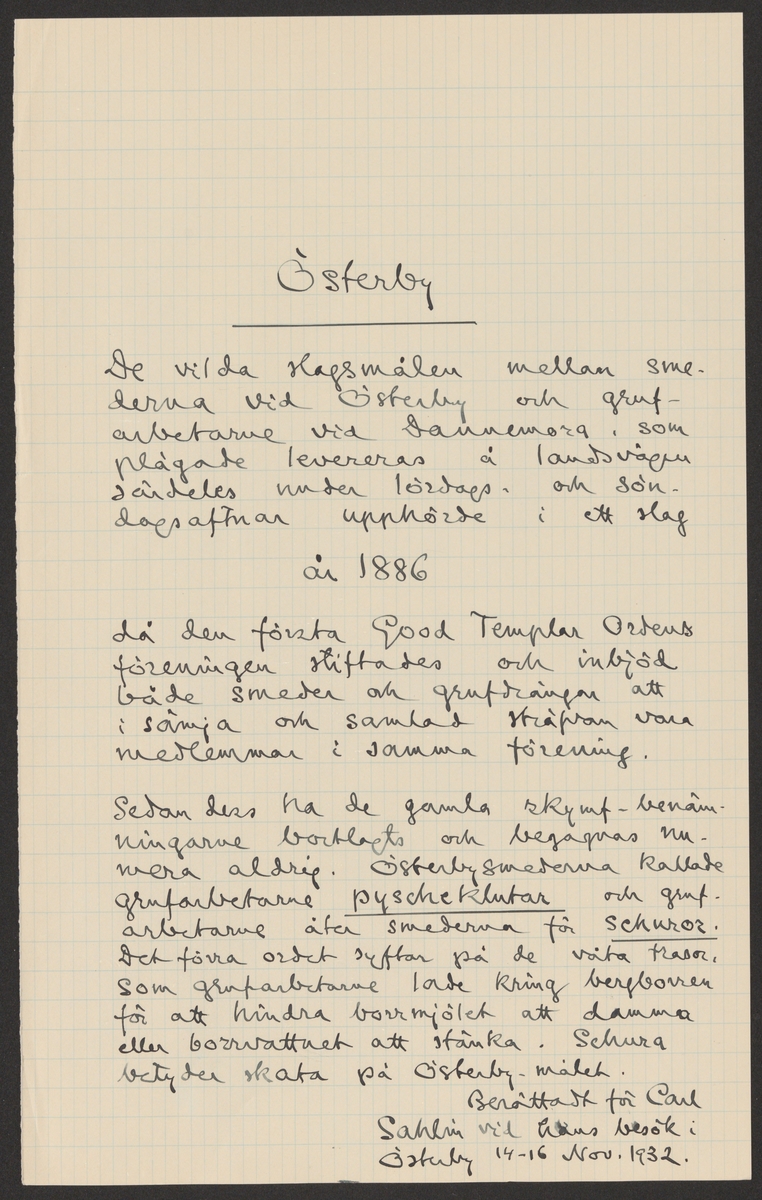 Österby
De vilda slagsmålen mellan sme-
derna vid Österby och gruf-
arbetarne vid Dannemora, som
plägade levereras å landsvägen
särdeles under lördags- och sön-
dagsaftnar upphörde i ett slag
år 1886
då den första Good Templar Ordens
föreningen stiftades och inbjöd
både smeder och grufdrängar att
i sämja och samlad sträfvan vara
medlemmar i samma förening.
Sedan dess ha de gamla skymf-benäm-
ningarne bortlagts och begagnas nu-
mera aldrig. Österbysmederna kallade
grufarbetarne pyscheklutar och gruf-
arbetarne åter smederna för schuror.
Det förra ordet syftar på de våta trasor,
som grufarbetarne lade kring bergborren
för att hindra borrmjölet att damma
eller borrvattnet att stänka. Schura
betyder skata på Österby-målet.
Berättadt för Carl
Sahlin vid hans besök i
Österby 14-16 Nov. 1932.